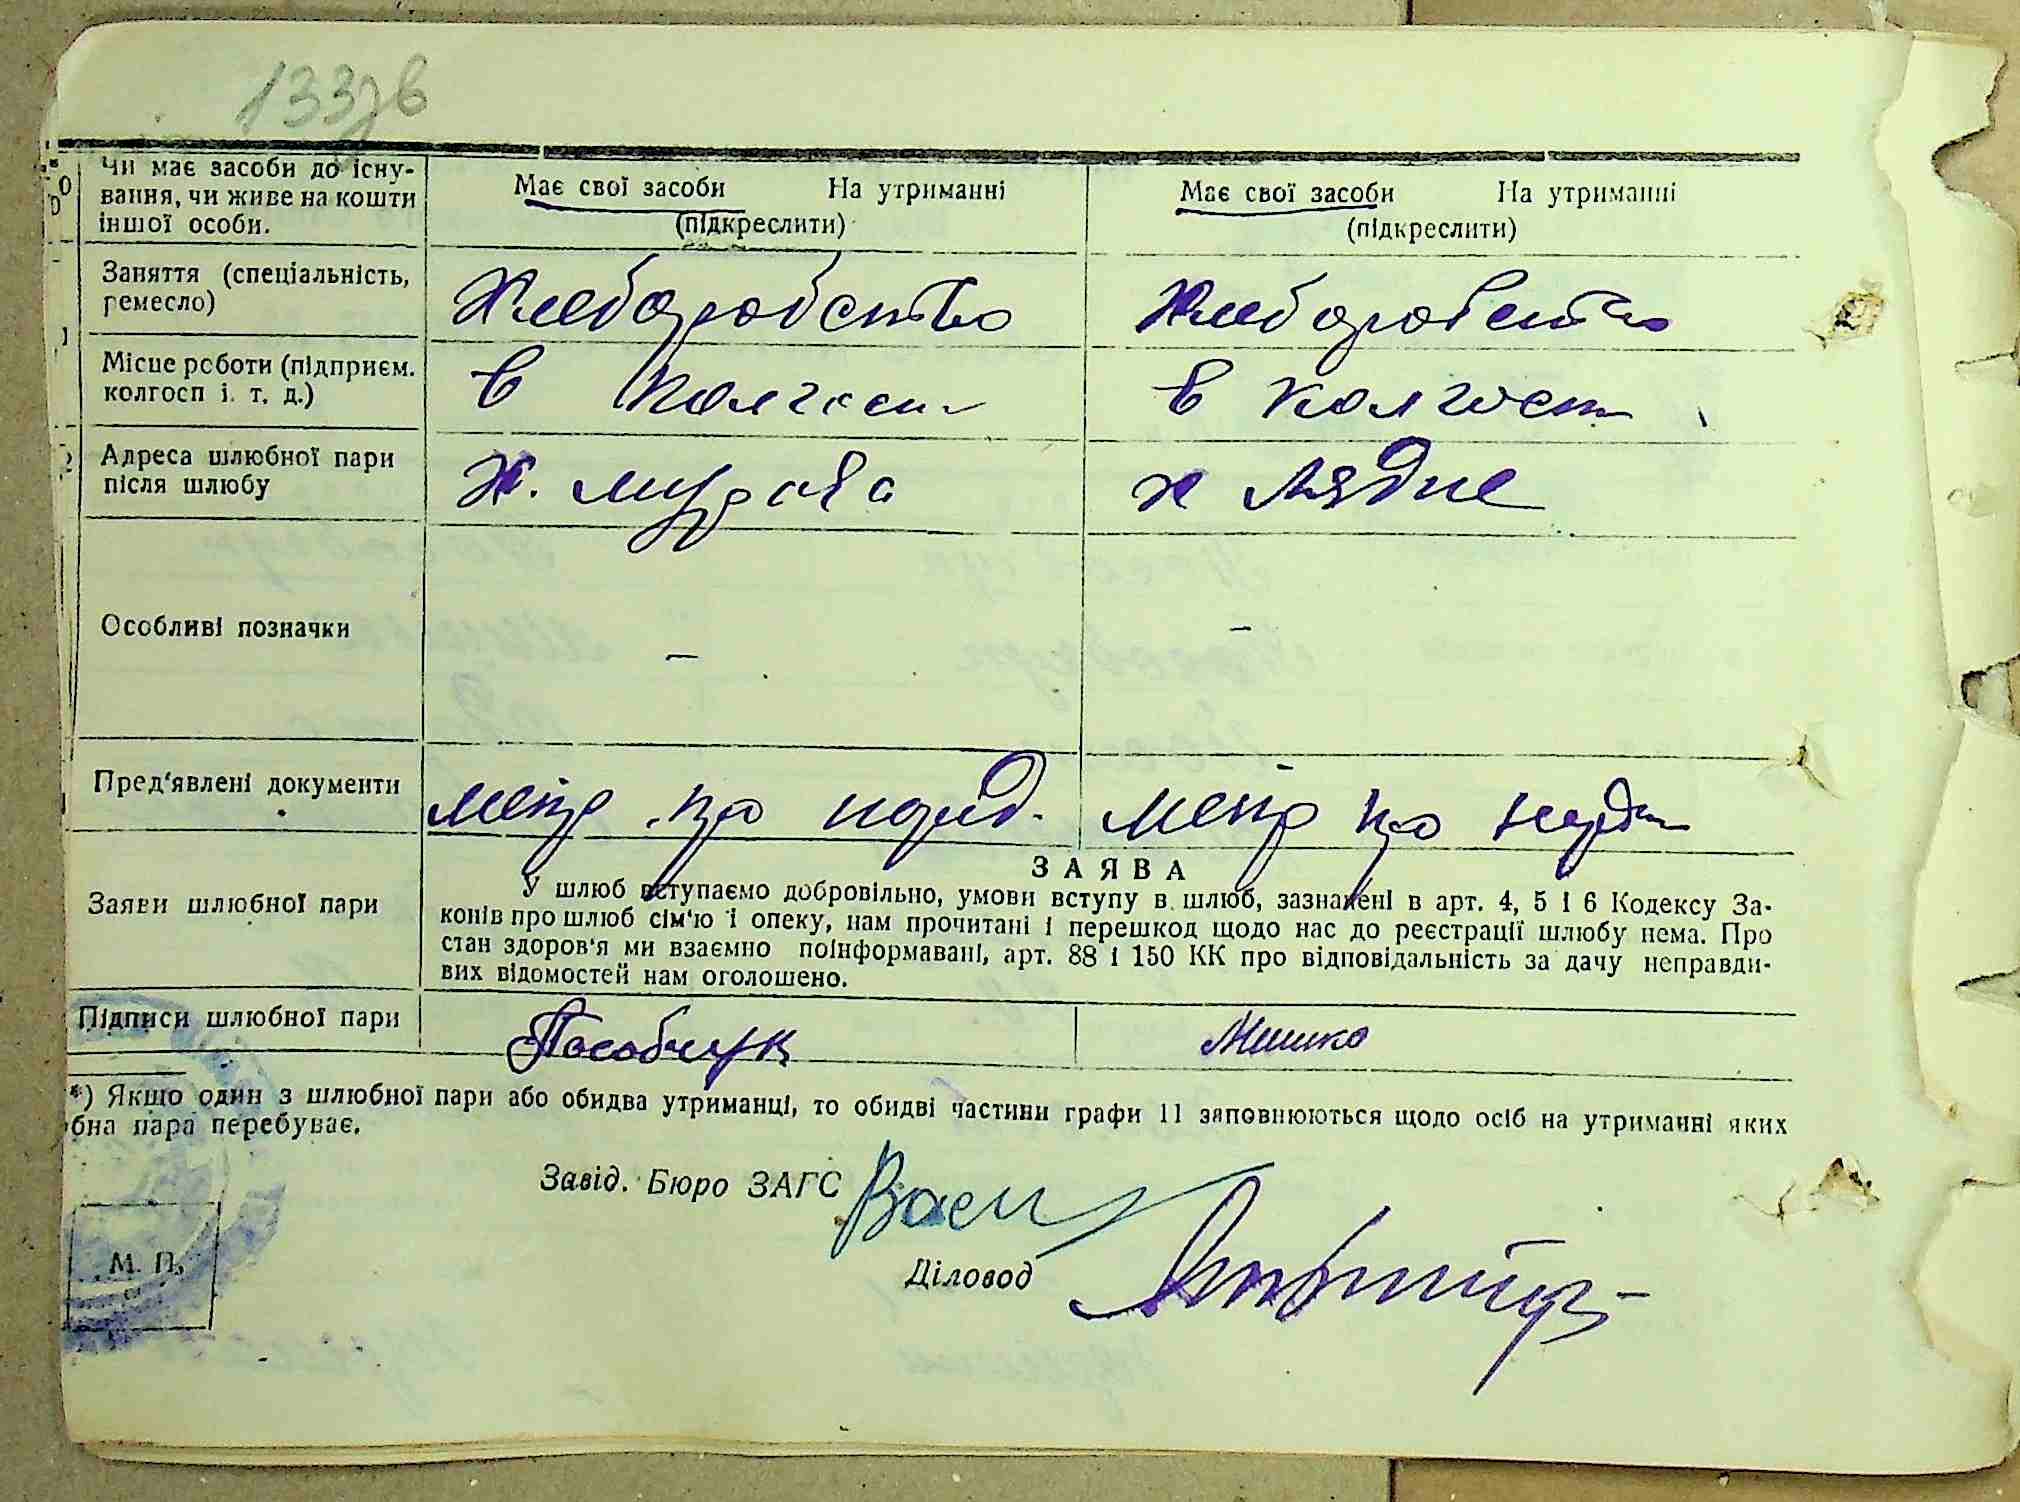 133зв
Чи має засоби до існу-
вання, чи живе на кошти
іншої особи.
Має свої засоби На утриманні
(підкреслити)
Має свої засоби На утриманні
(підкреслити)
Заняття (спеціальність,
ремесло)
Хлеборобство
Хлеборобство
Місце роботи (підприєм.
колгосп і. т. д.)
в колгоспі
в колгоспі
Адреса шлюбної пари
після шлюбу
х. Мурава
х Лядне
Особливі позначки
—
—
Пред'явлені документи
метр про народ.
метр про народ
Заяви шлюбної пари
ЗАЯВА
У шлюб вступаємо добровільно, умови вступу в шлюб, зазначені в арт. 4, 5 і 6 Кодексу За-
конів про шлюб сім'ю і опеку, нам прочитані і перешкод щодо нас до реєстрації шлюбу нема. Про
стан здоров'я ми взаємно поінформавані, арт. 88 і 150 КК про відповідальність за дачу неправди-
вих відомостей нам оголошено.
Підписи шлюбної пари
Пособчук
Мишко
*) Якщо один з шлюбної пари або обидва утриманці, то обидві частини графи 11 заповнюються щодо осіб на утриманні яких
бна пара перебуває.
Завід. Бюро ЗАГС
Діловод
М. П.